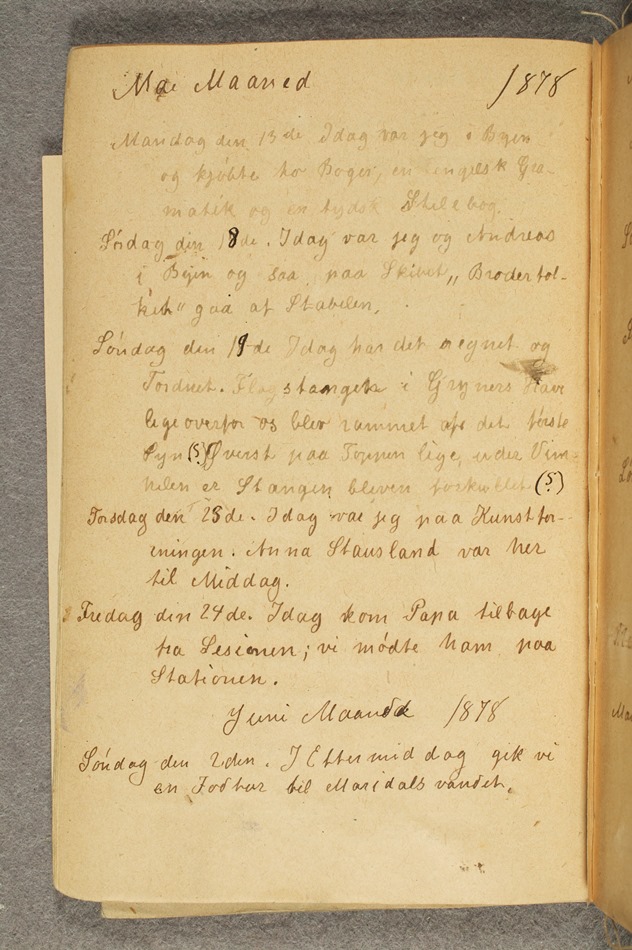 Mai Maaned 1878
Mandag den 13de Idag var jeg i Byen
og kjøbte to Bøger, en engelsk Gra-
matik og en tydsk Stilebog.
Lørdag den 18de. Idag var jeg og Andreas
i Byen og saa paa Skibet „Broderfol-
ket" gaa af Stabelen.
Søndag den 19de Idag har det regnet og
Tordnet. Flagstangen i Gryners Have
lige overfor os blev rammet af det første
Lyn (?) Øverst paa Toppen lige under Vim-
pelen er Stangen bleven (?)
Torsdag den 23de. Idag var jeg paa Kunstfor-
eningen. Anna Stausland var her
til Middag.
Fredag den 24de. Idag kom Papa tilbage
fra Sesionen; vi mødte ham paa
Stationen.
Juni Maaned 1878
Søndag den 2den. I Eftermiddag gik vi
en Fodtur til Maridalsvandet.